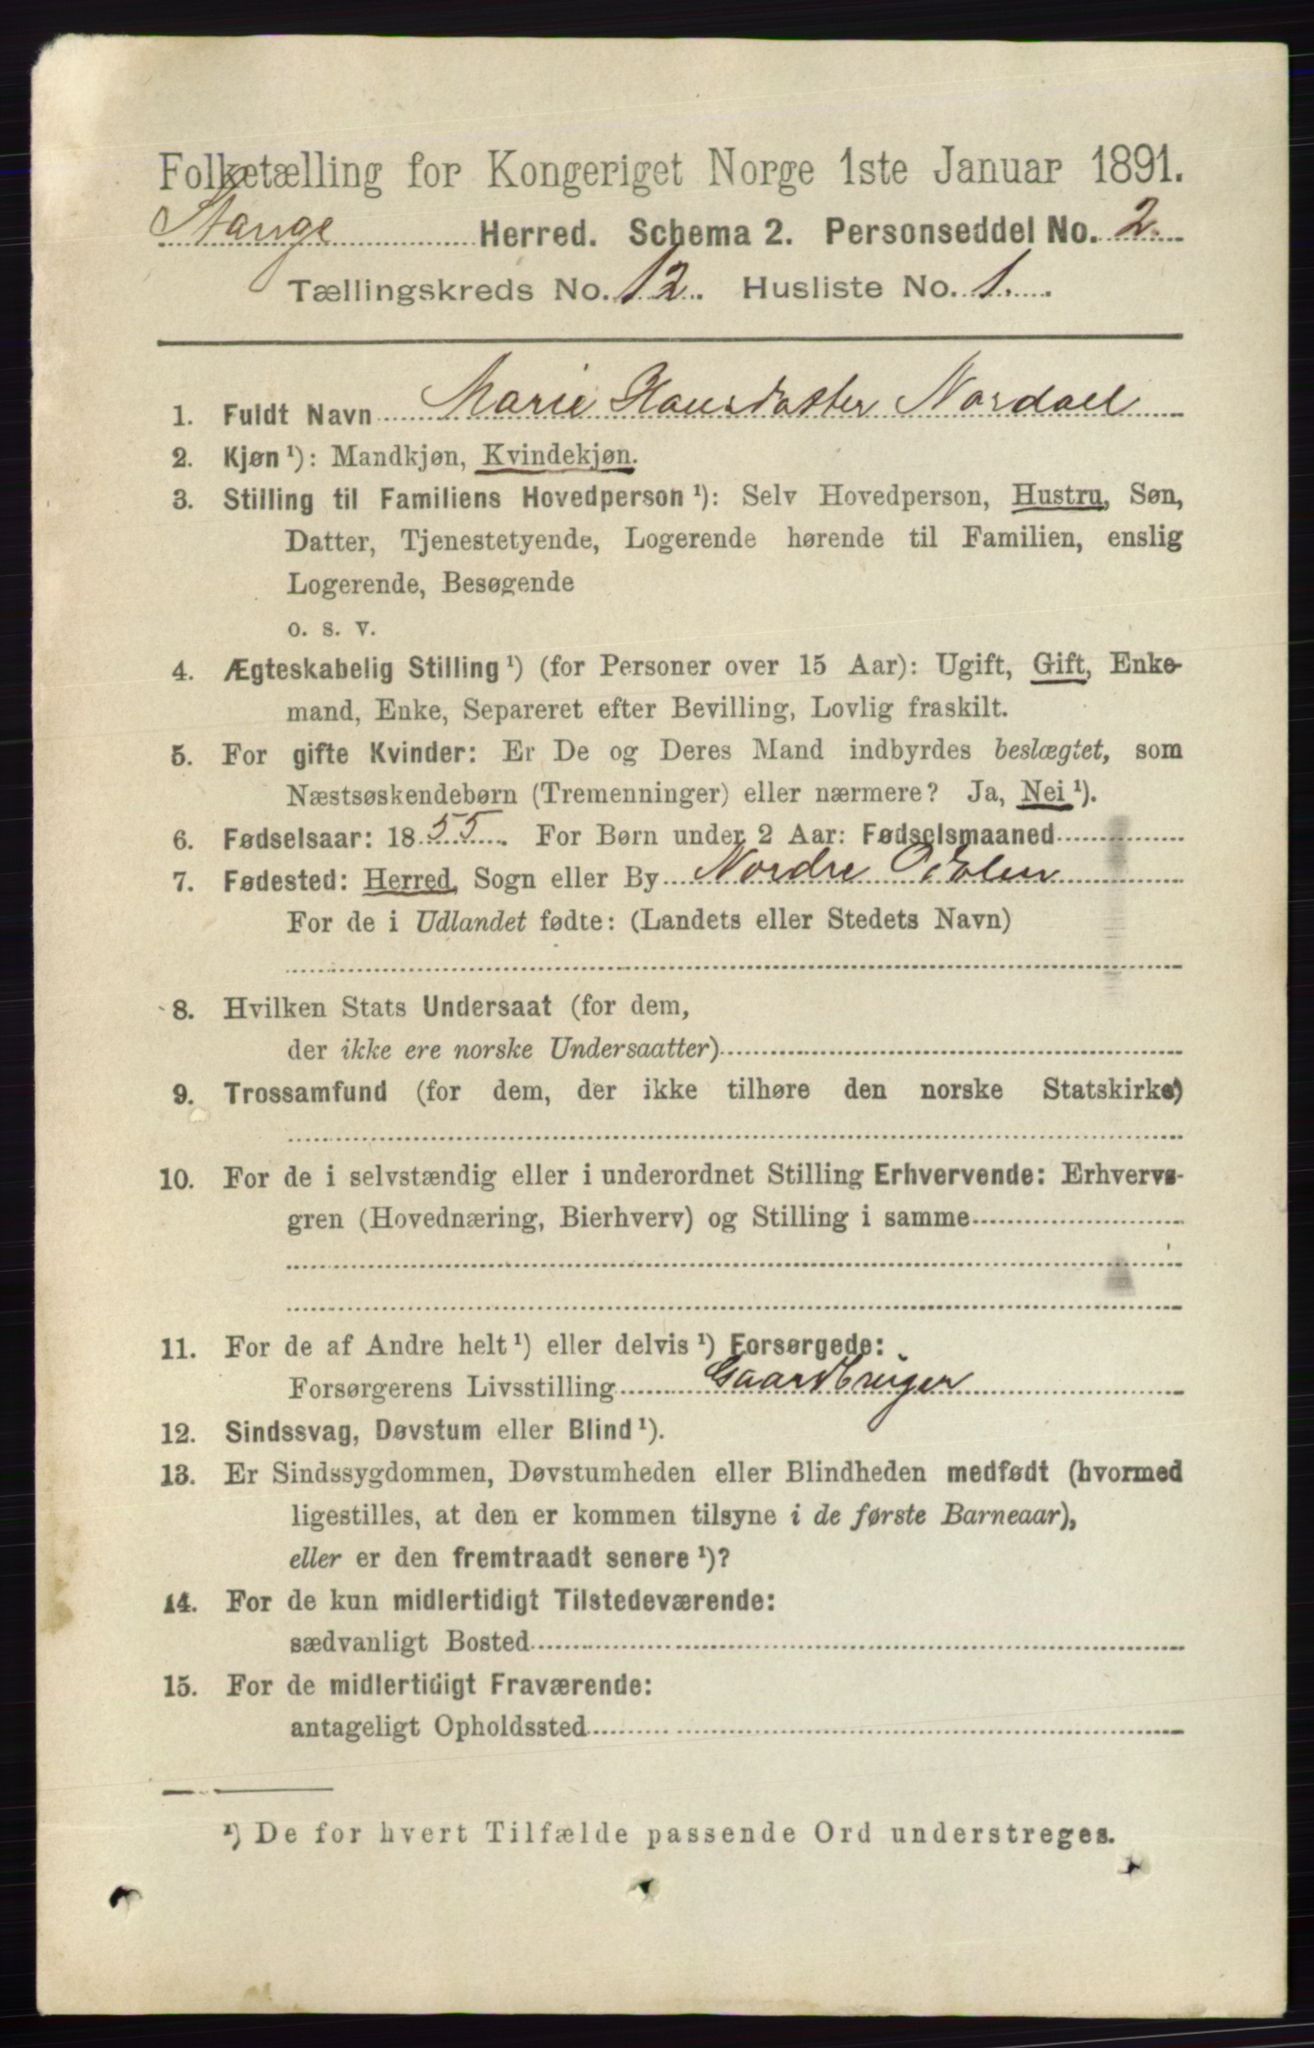 Folketælling for Kongeriget Norge 1ste Januar 1891.
Stange Herred. Schema 2. Personseddel No. 2.
Tællingskreds No. 12. Husliste No. 1.
1. Fuldt Navn Marie Hansdatter Nordal
2. Kjøn ¹): Mandkjøn, Kvindekjøn.
3. Stilling til Familiens Hovedperson ¹): Selv Hovedperson, Hustru, Søn,
Datter, Tjenestetyende, Logerende hørende til Familien, enslig
Logerende, Besøgende
o. s. v.
4. Ægteskabelig Stilling ¹) (for Personer over 15 Aar): Ugift, Gift, Enke-
mand, Enke, Separeret efter Bevilling, Lovlig fraskilt.
5. For gifte Kvinder: Er De og Deres Mand indbyrdes beslægtet, som
Næstsøskendebørn (Tremenninger) eller nærmere? Ja, Nei ¹).
6. Fødselsaar: 1855. For Børn under 2 Aar: Fødselsmaaned
7. Fødested: Herred, Sogn eller By Nordre Odalen
For de i Udlandet fødte: (Landets eller Stedets Navn)
8. Hvilken Stats Undersaat (for dem,
der ikke ere norske Undersaatter)
9. Trossamfund (for dem, der ikke tilhøre den norske Statskirke)
10. For de i selvstændig eller i underordnet Stilling Erhvervende: Erhvervs-
gren (Hovednæring, Bierhverv) og Stilling i samme
11. For de af Andre helt ¹) eller delvis ¹) Forsørgede:
Forsørgerens Livsstilling Gaardbruger
12. Sindssvag, Døvstum eller Blind ¹).
13. Er Sindssygdommen, Døvstumheden eller Blindheden medfødt (hvormed
ligestilles, at den er kommen tilsyne i de første Barneaar),
eller er den fremtraadt senere ¹)?
14. For de kun midlertidigt Tilstedeværende:
sædvanligt Bosted
15. For de midlertidigt Fraværende:
antageligt Opholdssted
¹) De for hvert Tilfælde passende Ord understreges.